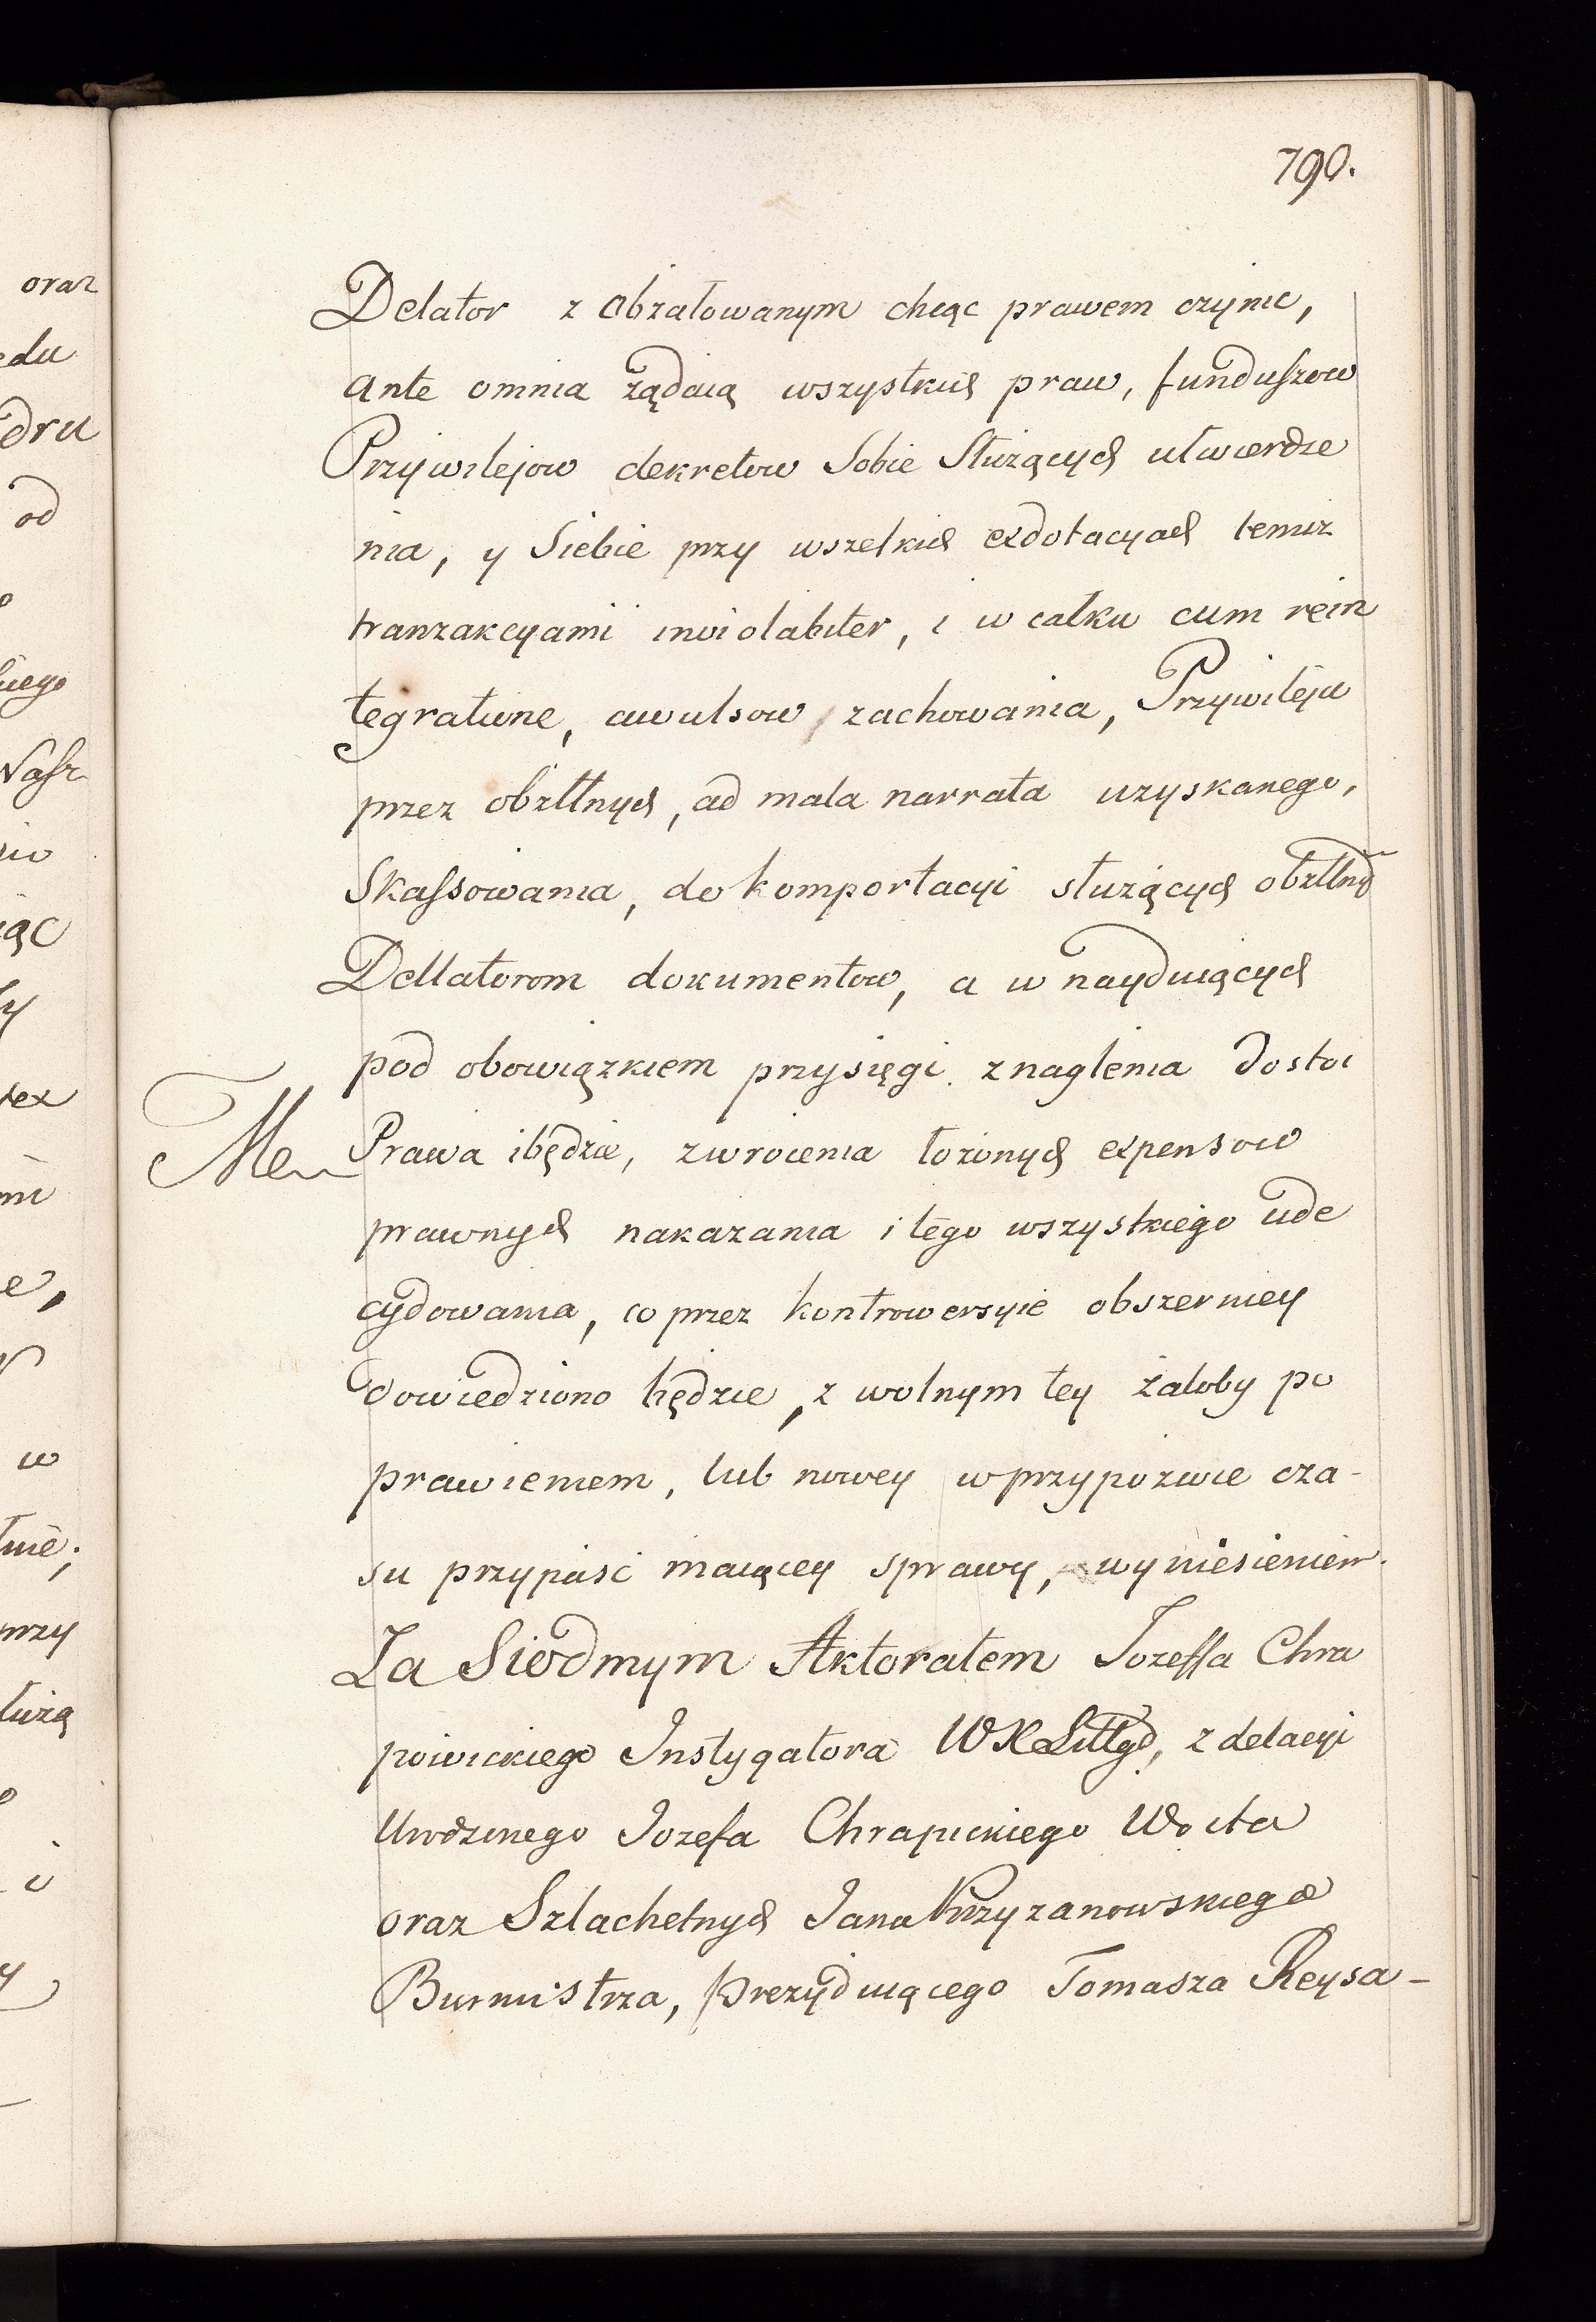 790.
oraz
Delator z obżałowanym chcąc prawem czynic,
ante omnia żądaią wszystkich praw, funduszow
Przywilejow dekretow Sobie Służących utwierdze
nia, y Siebie przy wszelkich exdotacyach temiż
tranzakcyami inviolabiter, i w całku cum rein
tegratione, awulsow zachowania, Przywileju
przez obżłłnych, ad mala narrata uzyskanego,
Skassowania, do komportacyi służących obżłłnych
Dellatorom dokumentow, a w nayduiących
pod obowiązkiem przysięgi znaglenia dostoi
Prawa i będzie, zwrocenia łożonych expensow
prawnych nakazania i tego wszystkiego ude
cydowania, co przez kontrowersyie obszerniey
dowiedziono będzie, z wolnym tey żałoby po
prawieniem, lub nowey w przypozwie cza-
su przypaść maiącey sprawy, wyniesieniem.
Za Siodmym Aktoratem Jozeffa Chra
powickiego Instygatora WXLittgo, z delacyi
Urodzonego Jozefa Chrapickiego Woita
oraz Szlachetnych Jana Krzyzanowskiego
Burmistrza, prezyduiącego Tomasza Reysa-